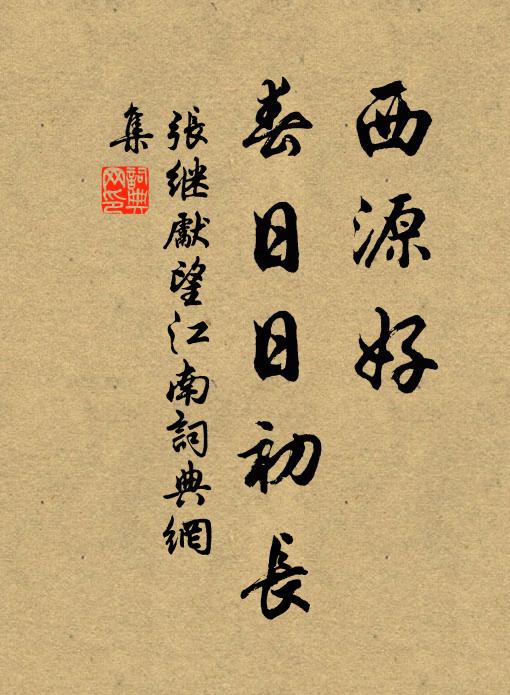 西源好
春日日初長
張继獻望江南詞典網
集
詞典
网印